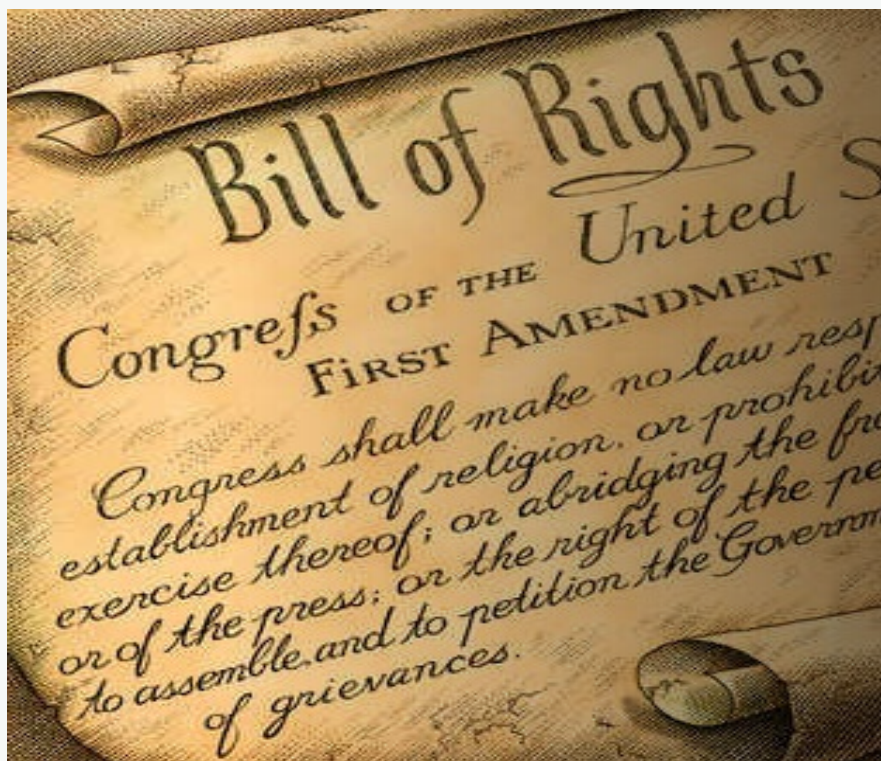 Bill of Rights
Congreſs OF THE United S
FIRST AMENDMENT
Congress shall make no law resp
establishment of religion, or prohibi
exercise thereof; or abridging the fr
or of the press; or the right of the pe
to assemble, and to petition the Governm
of grievances.